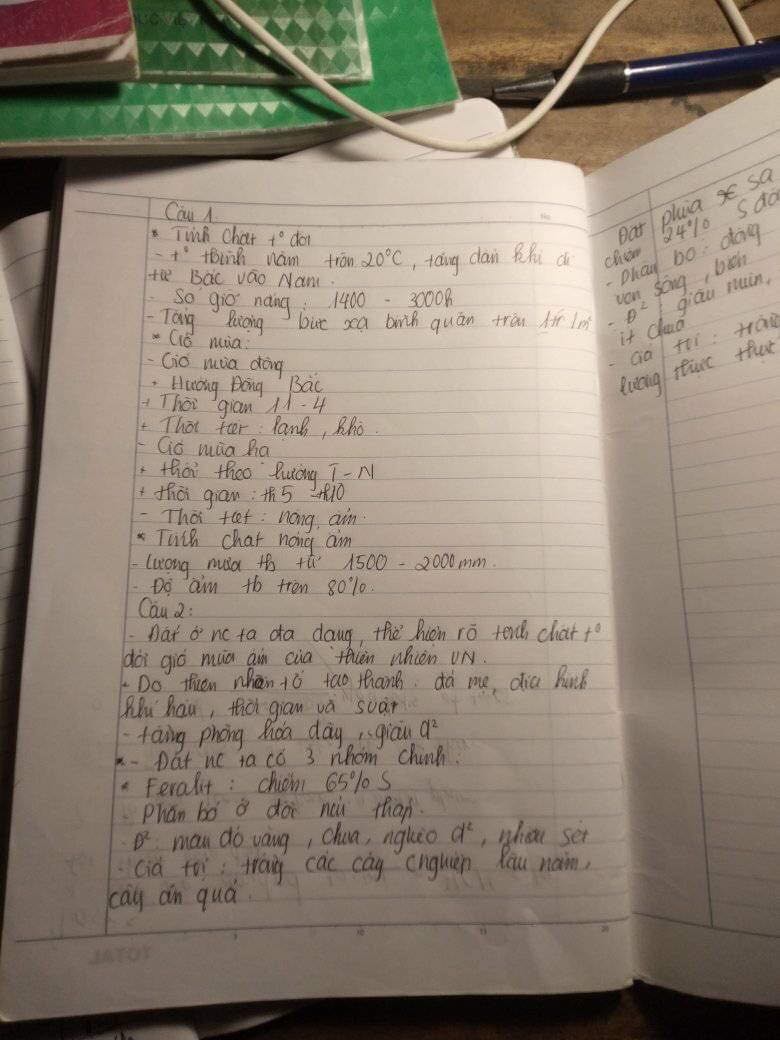 Câu 1.
* Tính chất t° đới
- t° tbình năm trên 20°C, tăng dần khi đi
từ Bắc vào Nam.
- Số giờ nắng: 1400 - 3000h
- Tổng lượng bức xạ bình quân trên 1tr 1m²
* Gió mùa:
- Gió mùa đông
+ Hướng Đông Bắc
+ Thời gian 11-4
+ Thời tiết: lạnh, khô.
- Gió mùa hạ
+ thổi theo hướng T-N
+ thời gian: th5 - th10
- Thời tiết: nóng, ẩm.
* Tính chất nóng ẩm
- Lượng mưa tb từ 1500 - 2000mm.
- Độ ẩm tb trên 80%.
Câu 2:
- Đất ở nc ta đa dạng, thể hiện rõ tính chất t°
đới gió mùa ẩm của thiên nhiên VN.
- Do nhân tố tạo thành: đá mẹ, địa hình
khí hậu, thời gian và
- tầng phong hóa dày,
* - Đất nc ta có 3 nhóm chính:
* Feralit: chiếm 65% S
- Phân bố ở đồi núi thấp.
- Đ²: màu đỏ vàng, chua, nghèo d², nhiều sét
- Giá trị: trồng các cây cnghiệp lâu năm,
cây ăn quả.
Đất phù sa
chiếm 24% S
- Phân bố: đồng
ven sông, biển
- Đ²: giàu mùn,
ít chua
- Giá trị:
lương thực, thực
TOTAL